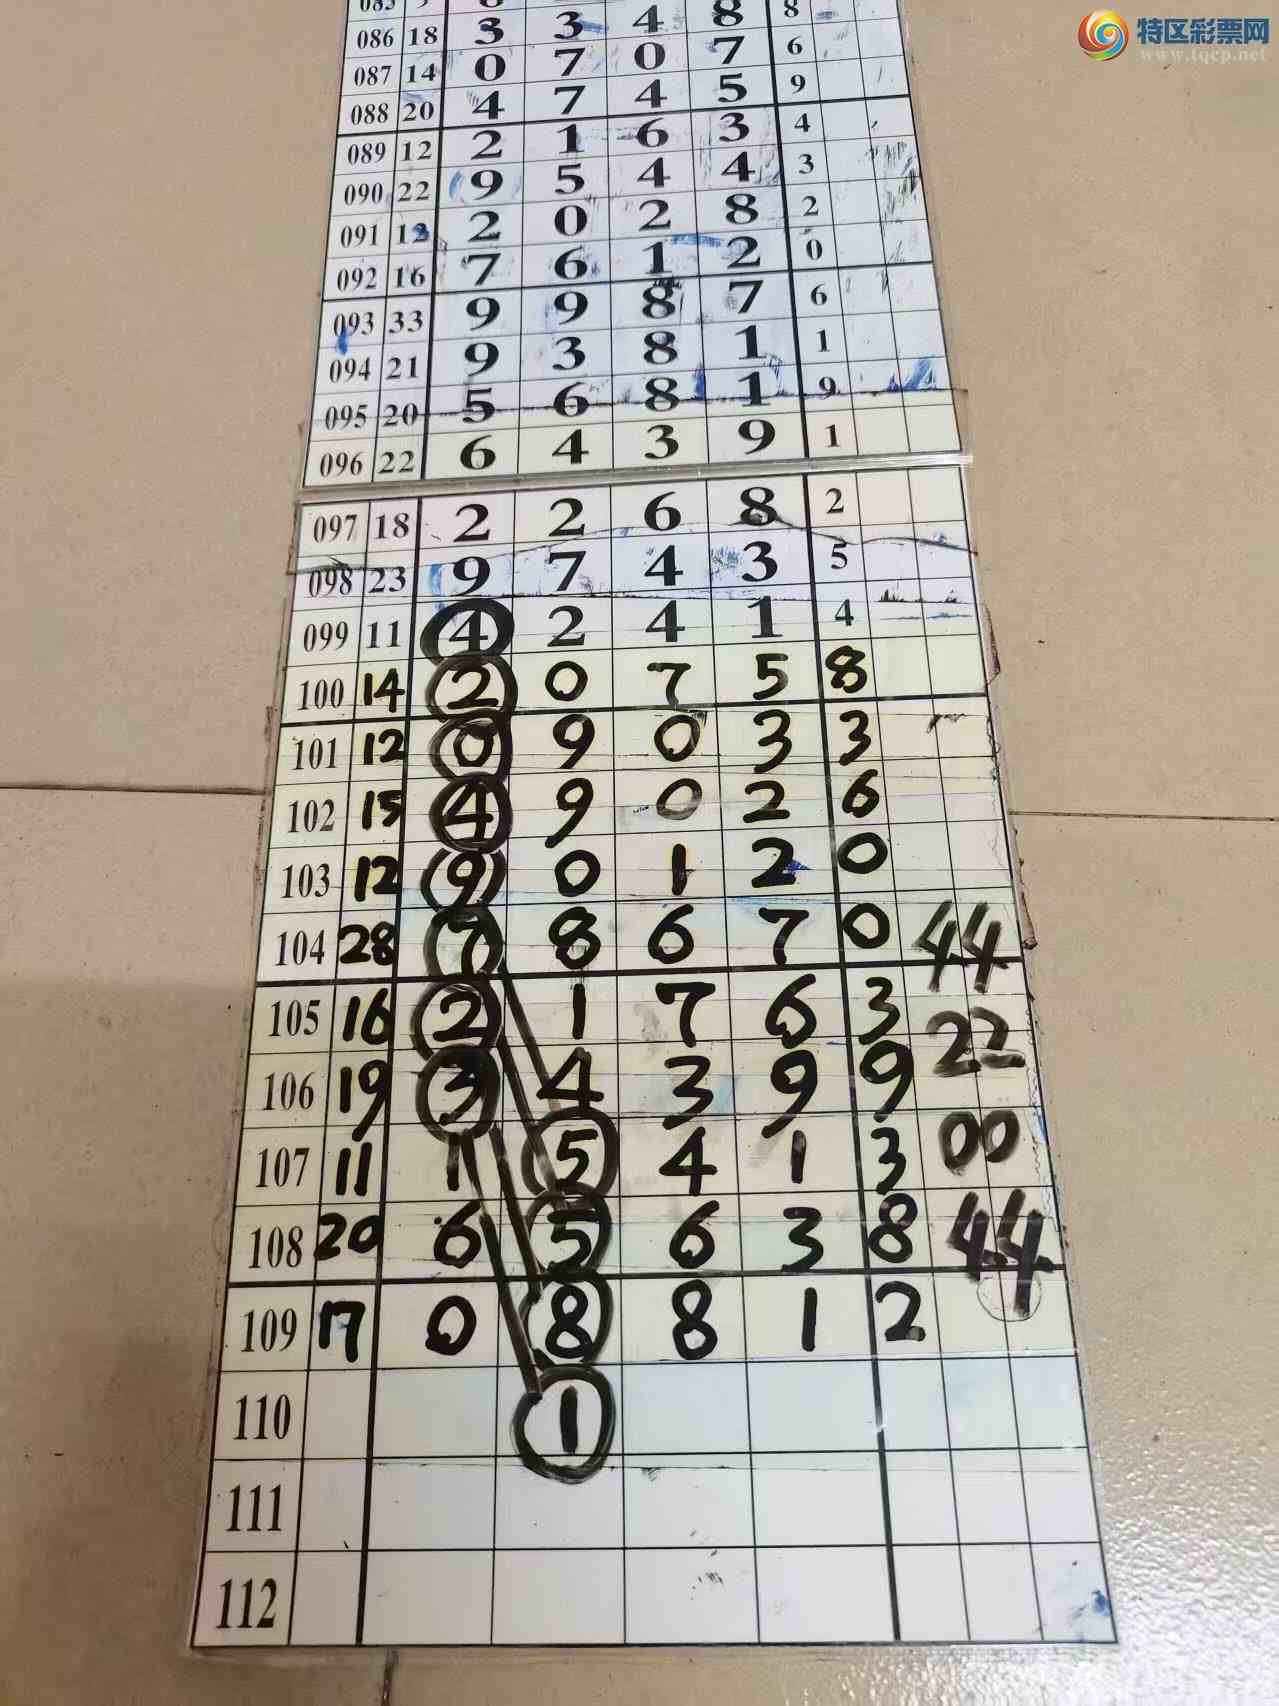 特区彩票网
www.tqcp.net
086 18 3 3 4 8 8
087 14 0 7 0 7 6
088 20 4 7 4 5 9
089 12 2 1 6 3 4
090 22 9 5 4 4 3
091 12 2 0 2 8 2
092 16 7 6 1 2 0
093 33 9 9 8 7 6
094 21 9 3 8 1 1
095 20 5 6 8 1 9
096 22 6 4 3 9 1
097 18 2 2 6 8 2
098 23 9 7 4 3 5
099 11 4 2 4 1 4
100 14 2 0 7 5 8
101 12 0 9 0 3 3
102 15 4 9 0 2 6
103 12 9 0 1 2 0
104 28 7 8 6 7 0 44
105 16 2 1 7 6 3 22
106 19 3 4 3 9 9
107 11 1 5 4 1 3 00
108 20 6 5 6 3 8 44
109 17 0 8 8 1 2
110 1
111
112